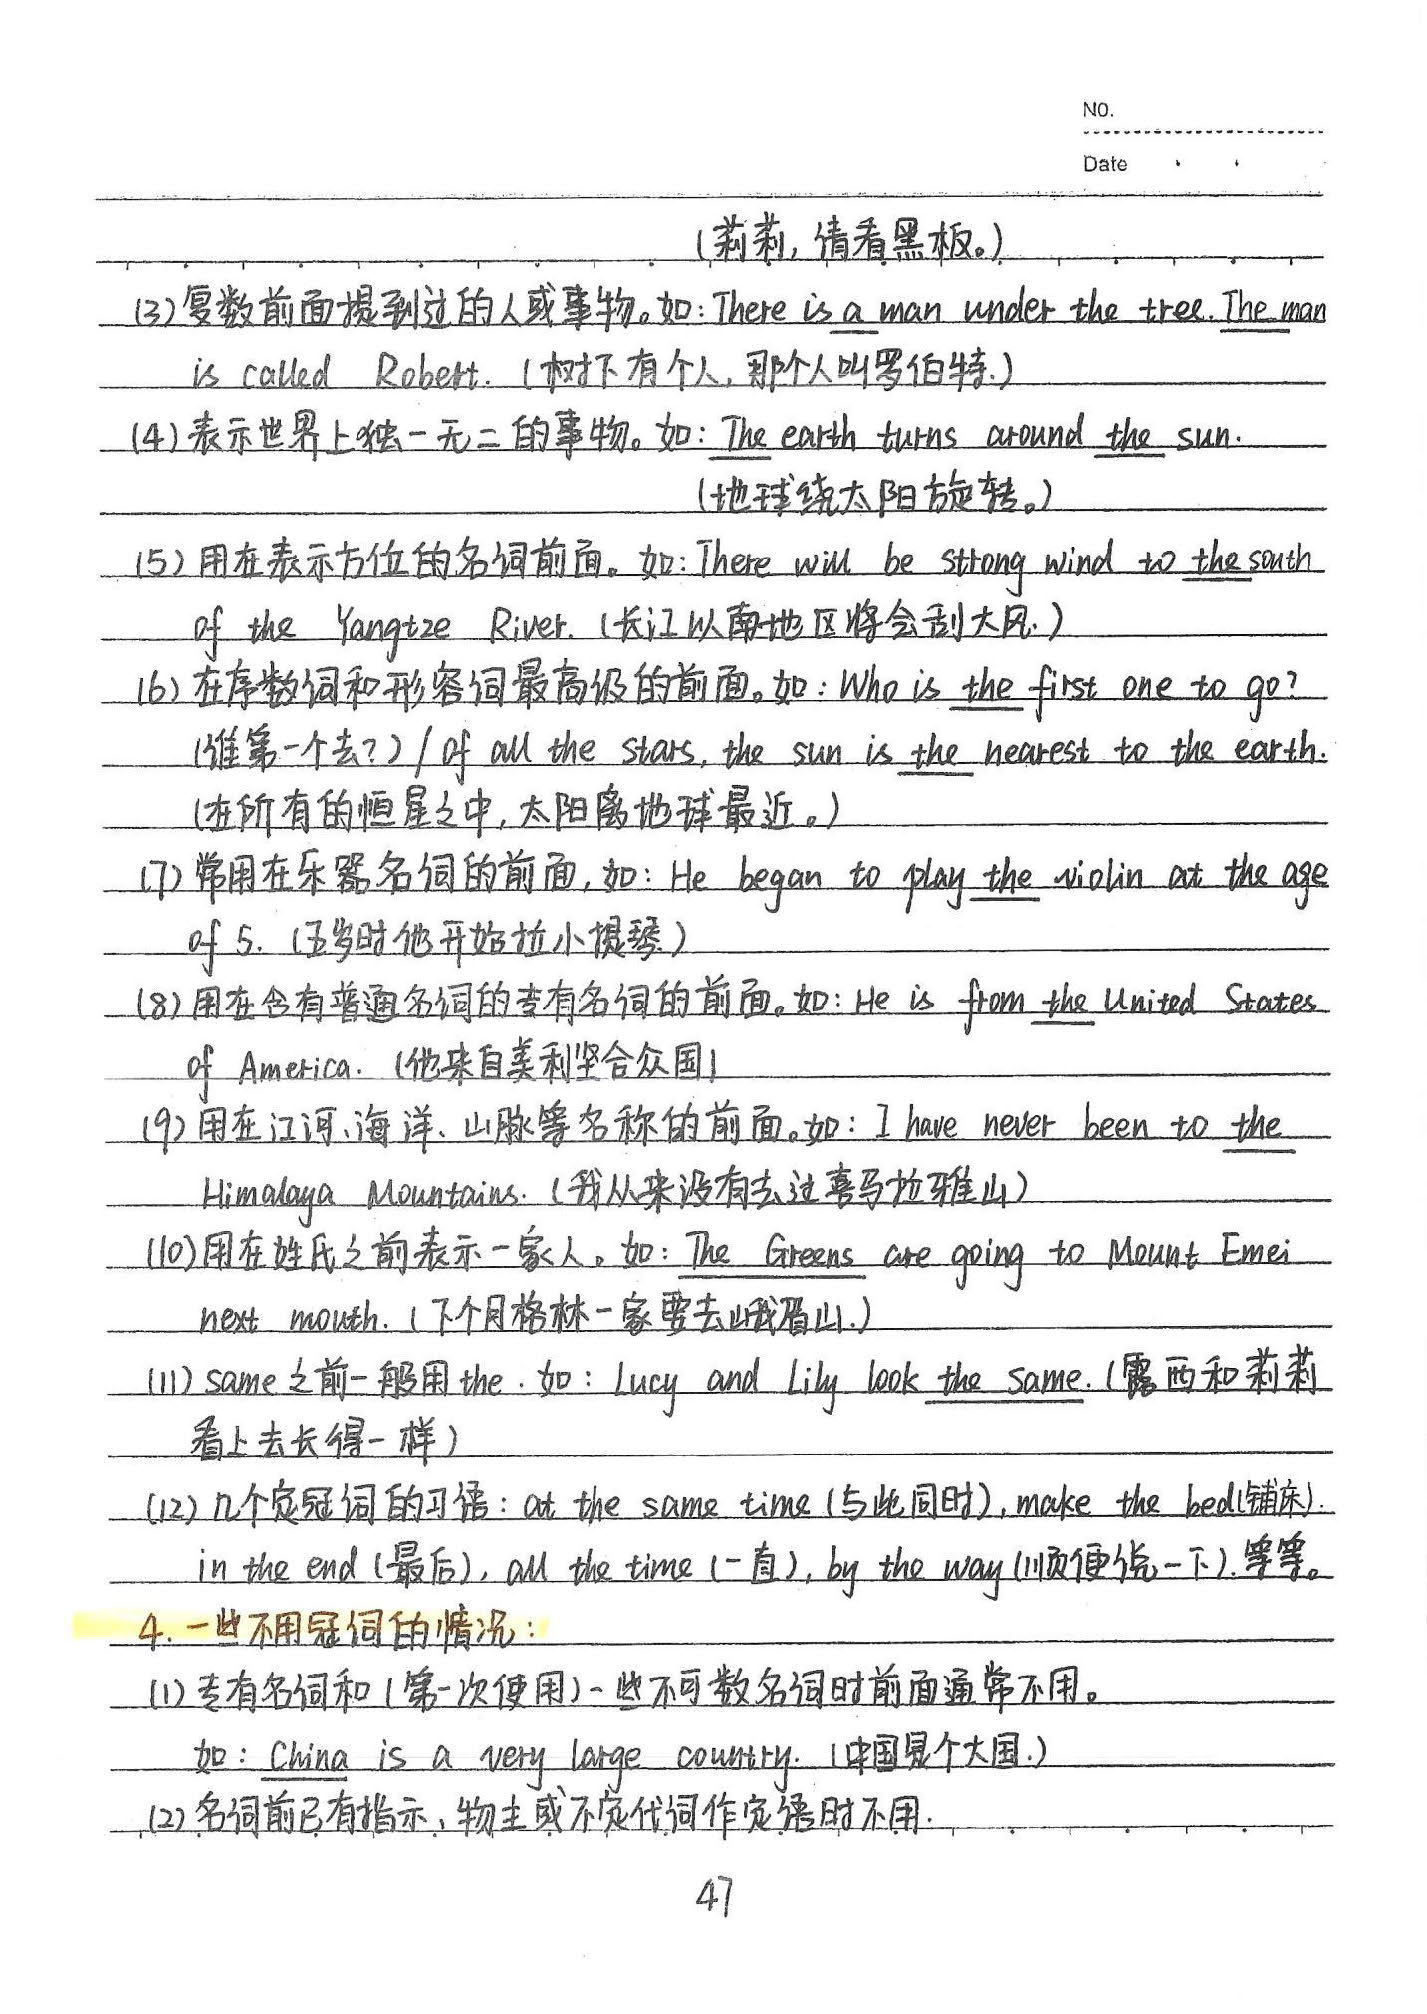 NO.
Date
(莉莉,请看黑板。)
(3)复数前面提到过的人或事物。如:There is a man under the tree. The man
is called Robert.(树下有个人,那个人叫罗伯特.)
(4)表示世界上独一无二的事物。如:The earth turns around the sun.
(地球绕太阳旋转。)
(5)用在表示方位的名词前面。如:There will be strong wind to the south
of the Yangtze River.(长江以南地区将会刮大风.)
(6)在序数词和形容词最高级的前面。如:Who is the first one to go?
(谁第一个去?)/ Of all the stars, the sun is the nearest to the earth.
(在所有的恒星之中,太阳离地球最近。)
(7)常用在乐器名词的前面,如:He began to play the violin at the age
of 5.(五岁时他开始拉小提琴.)
(8)用在含有普通名词的专有名词的前面。如:He is from the United States
of America.(他来自美利坚合众国)
(9)用在江河、海洋、山脉等名称的前面。如:I have never been to the
Himalaya Mountains.(我从来没有去过喜马拉雅山)
(10)用在姓氏之前表示一家人。如:The Greens are going to Mount Emei
next mouth.(下个月格林一家要去峨眉山.)
(11)same之前一般用the.如:Lucy and Lily look the same.(露西和莉莉
看上去长得一样)
(12)几个定冠词的习语:at the same time(与此同时),make the bed(铺床).
in the end(最后),all the time(一直),by the way(顺便说一下).等等。
4.一些不用冠词的情况:
(1)专有名词和(第一次使用)一些不可数名词时前面通常不用。
如:China is a very large country.(中国是个大国.)
(2)名词前已有指示、物主或不定代词作定语时不用.
47